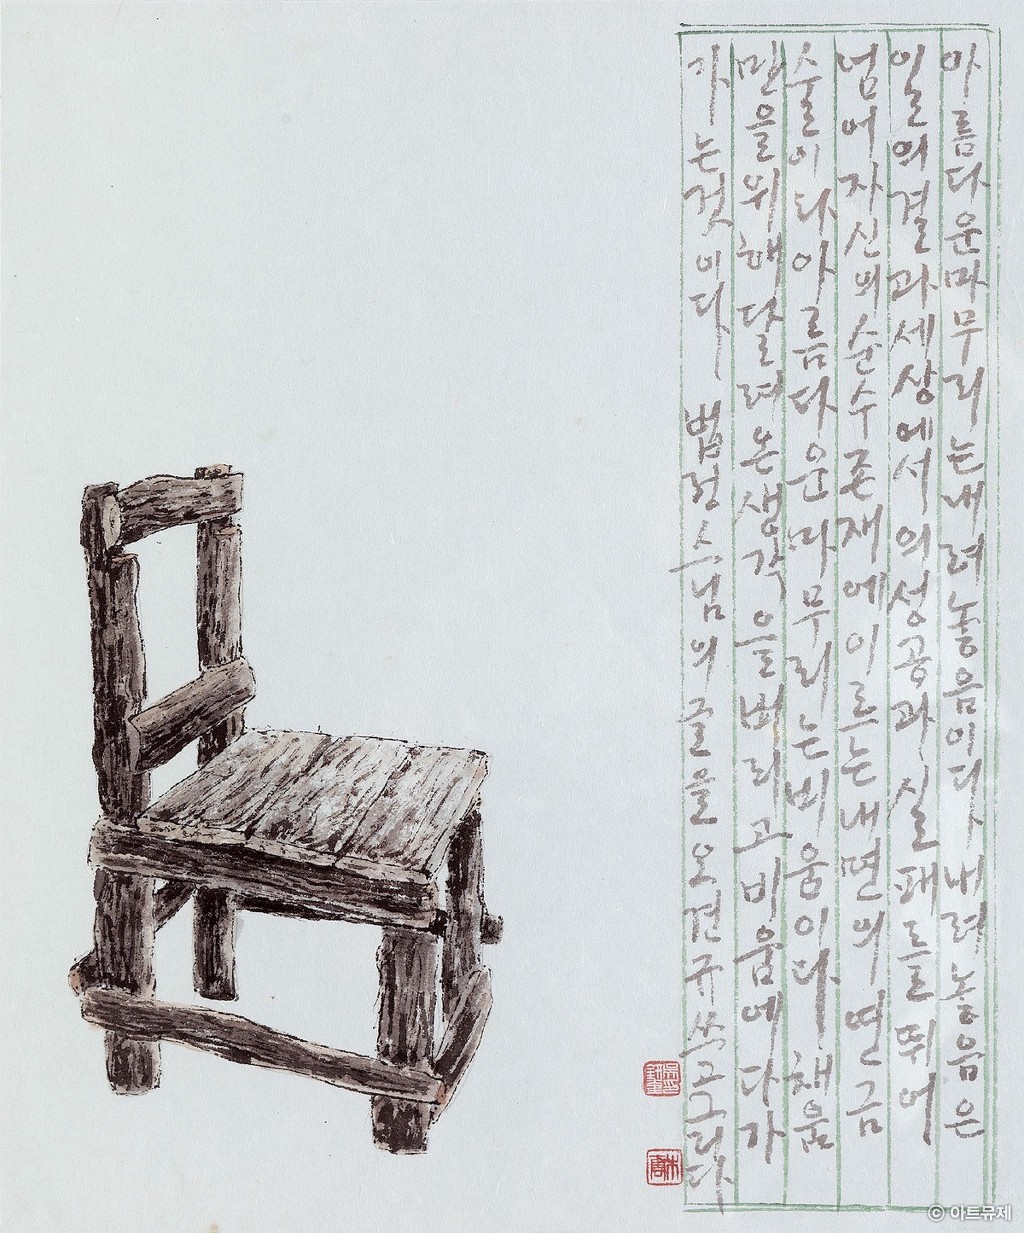 아름다운마무리는내려놓음이다내려놓음은
일의결과세상에서의성공과실패를뛰어
넘어자신의순수존재에이르는내면의연금
술이다아름다운마무리는비움이다채움
만을위해달려온생각을버리고비움에다가
가는것이다 법정스님의글을오견규쓰고그리다
© 아트뮤제